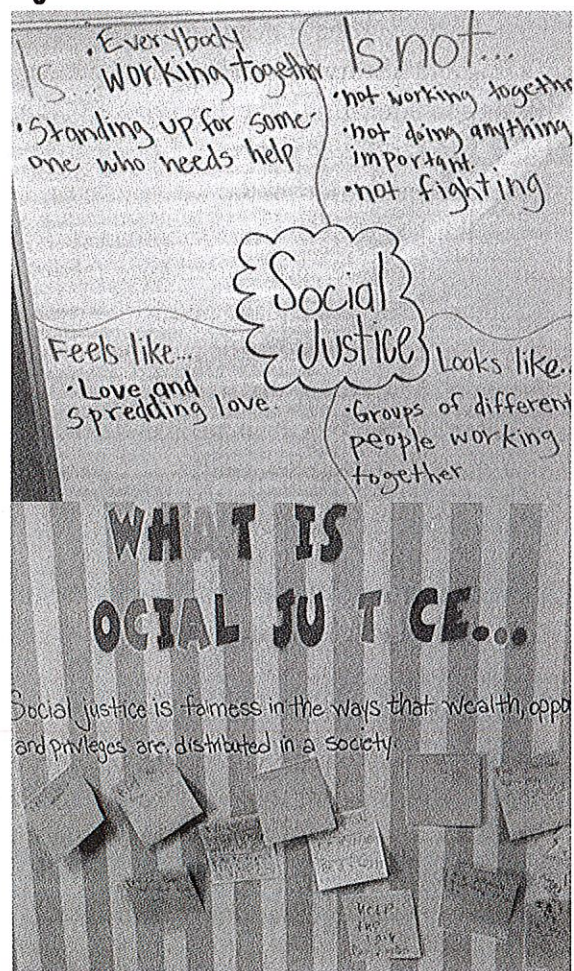 Is...
• Everybody
working together
• Standing up for some-
one who needs help
Is not...
• not working togethe
• not doing anything
important.
• not fighting
Social
Justice
Feels like...
• Love and
spredding love.
Looks like..
• Groups of different
people working
together
WHAT IS
OCIAL JU T CE...
Social justice is fairness in the ways that wealth, oppo
and privleges are distributed in a society.
Help
the